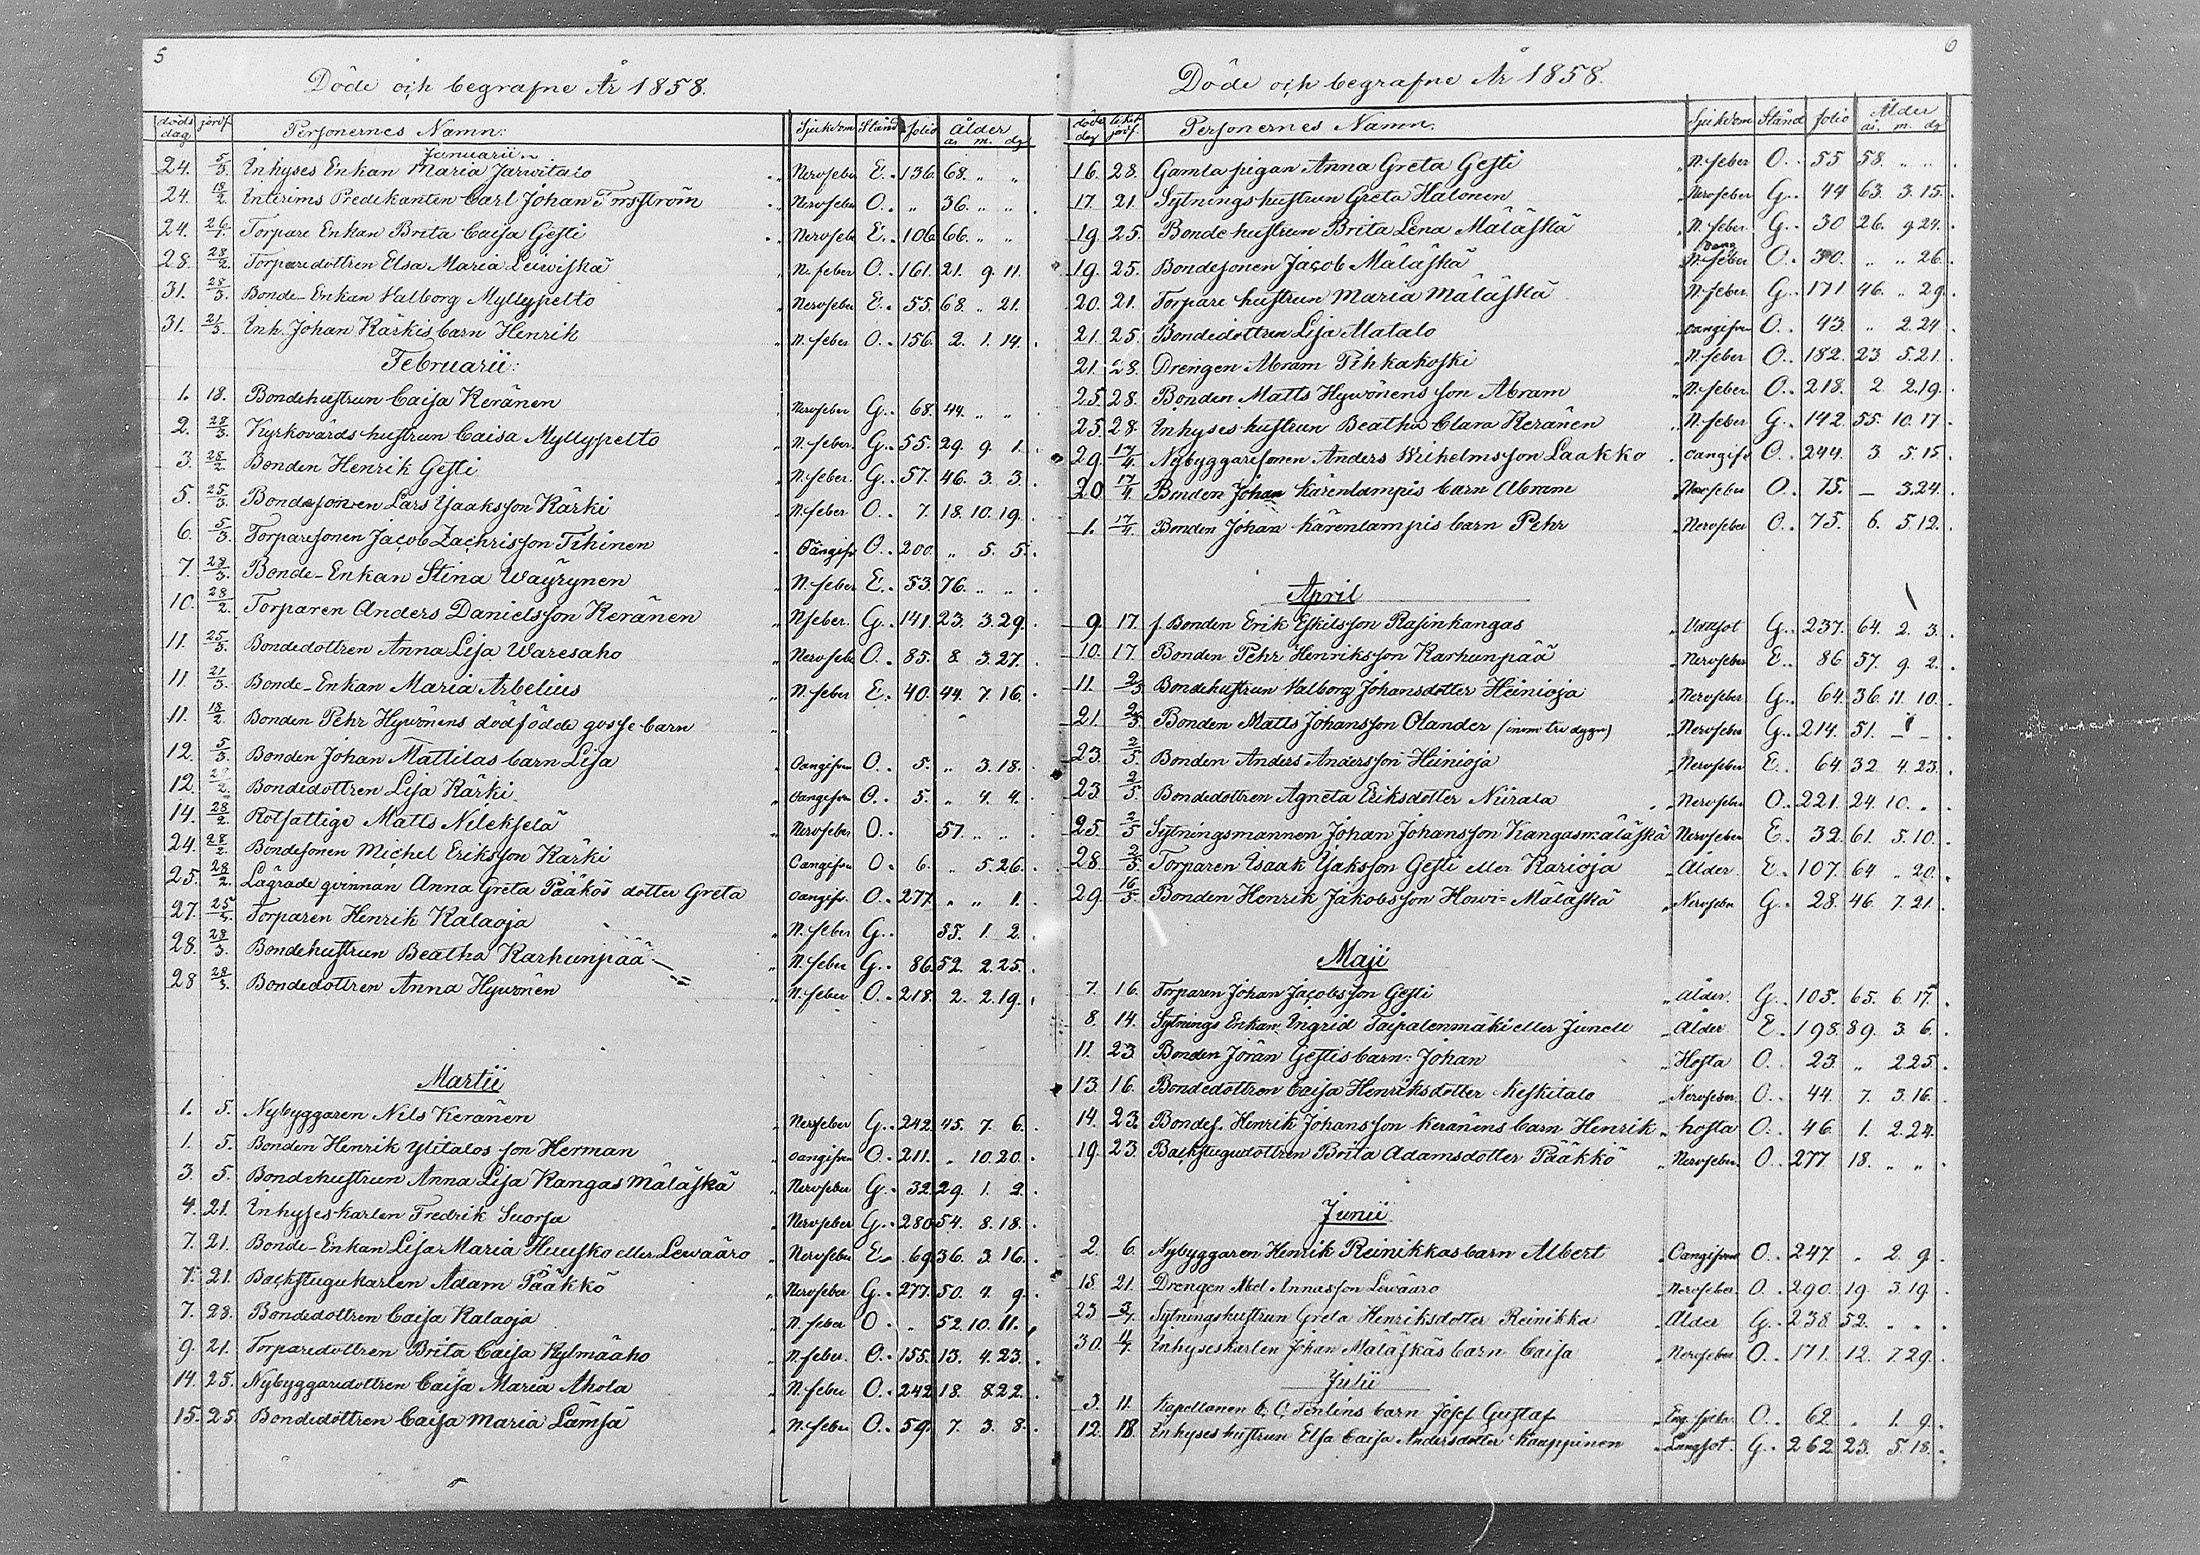 5
Döde och begrafne År 1858.
döds dag jordf. Personernes Namn: Sjukdom Stånd folio Ålder år m. dg
Januarii
24. 5/3. Inhyses Enkan Maria Jarwitalo Nervfeber E. 136. 68. " "
24. 18/2 Interims Predikanten Carl Johan Forsström Nervfeber O. " 36. " "
24. 26/1. Torpare Enkan Brita Caisa Gesti Nervfeber E. 106 66. " "
28. 28/2. Torparedottren Elsa Maria Leiwiskä N. feber O. 161. 21. 9. 11.
31. 28/3. Bonde-Enkan Valborg Myllypelto Nervfeber E. 55. 68. " 21.
31. 21/3. Inh. Johan Kärkis barn Henrik N. feber O. 156. 2. 1. 14.
Februarii:
1. 18. Bondehustrun Caisa Keränen Nervfeber G. 68. 44. " "
2. 28/3. Kyrkovärds hustrun Caisa Myllypelto N. feber. G. 55. 29. 9. 1.
3. 28/2 Bonden Henrik Gesti N. feber. G. 57. 46. 3. 3.
5. 25/3. Bondesonen Lars Isaaksson Kärki N. feber O. 7. 18. 10. 19.
6. 5/3. Torparesonen Jacob Zachrisson Tihinen O. 200. " 5. 5.
7. 28/3. Bonde-Enkan Stina Wäyrynen N. feber E. 53. 76. " "
10. 28/2. Torparen Anders Danielsson Keränen N feber. G. 141. 23. 3. 29.
11. 25/3. Bondedottren Anna Lisa Waresaho Nervfeber O. 85. 8. 3. 27.
11. 21/3. Bonde-Enkan Maria Arbelius N. feber E. 40. 44. 7. 16.
11. 18/2. Bonden Pehr Hywönens dödfödde gosse barn "
12. 5/3. Bonden Johan Mattilas barn Lisa Oangifven O. 5. " 3. 18.
12. Bondedottren Lisa Kärki Oangifven O. 5. " 4. 4.
14. 28/2. Rotfattige Matts Nilekselä Nervfeber O. 57. " "
24. 28/2. Bondesonen Michel Eriksson Kärki Oangifven O. 6. " 5. 26.
25. 28/2. Lägrade qvinnan Anna Greta Pääkös dotter Greta oangifv. O. 277. " " 1.
27. 25/3. Torparen Henrik Kalaoja N. feber G. 35. 1. 2.
28. 28/3. Bondehustrun Beatha Karhunpää N. feber G. 86. 52. 2. 25.
28 28/3. Bondedottren Anna Hywönen N. feber O. 218. 2. 2. 19.
Martii
1. 5. Nybyggaren Nils Keränen Nervfeber G. 242. 45. 7. 6.
1. 5. Bonden Henrik Ylitalos son Herman oangifven O. 211. " 10. 20.
3. 5. Bondehustrun Anna Lisa Kangas Mäläskä Nervfeber G. 32. 29. 1. 2.
4. 21. Inhyseskarlen Fredrik Suorsa Nervfeber G. 280 54. 8. 18.
7. 21. Bonde-Enkan Lisa Maria Huusko eller Lewääro Nervfeber E. 69. 36. 3. 16.
7. 21. Backstugukarlen Adam Pääkkö Nervfeber G. 277. 50. 4. 9.
7. 28. Bondedottren Caisa Kalaoja N. feber O. " 52. 10. 11.
9. 21. Torparedottren Brita Caisa Kylmäaho N. feber. O. 155. 13. 4. 23.
14. 25. Nybyggaredottren Caisa Maria Ahola N. feber O. 242. 18. 8. 22.
15. 25. Bondedottren Caisa Maria Lämsä N. feber O. 59. 7. 3. 8.
6
Döde och begrafne År 1858.
döds dag jordf. Personernes Namn. Sjukdom Stånd folio Ålder år. m. dg
16. 28. Gamla pigan Anna Greta Gesti N. feber O. 55 58. " "
17. 21. Sytnings hustrun Greta Halonen Nervfeber G. 44 63. 3. 15.
19. 25. Bonde hustrun Brita Lena Mäläskä N. feber. G. 30 26. 9. 24.
19. 25. Bondesonen Jacob Mäläskä N. feber O. 30. " " 26.
20. 21. Torpare hustrun Maria Mäläskä N. feber G. 171. 46. " 29.
21. 25. Bondedottren Lisa Alatalo oangifven O. 43. " 2. 24.
21. 28. Drengen Abram Pihkakoski N. feber O. 182. 23. 5. 21.
25. 28. Bonden Matts Hywönens son Abram N. feber O. 218. 2. 2. 19.
25. 28. Inhyses hustrun Beatha Clara Keränen N. feber G. 142. 55. 10. 17.
29. 17/4. Nybyggaresonen Anders Wilhelmsson Laakko oangifv O. 244. 3. 5. 15.
20. 17/4. Bonden Johan Kärenlampis barn Abram Nervfeber O. 75. — 3. 24.
1. 17/4. Bonden Johan Kärenlampis barn Pehr Nervfeber O. 75. 6. 5. 12.
April
9. 17. f. Bonden Erik Eskilsson Rasinkangas G. 237. 64. 2. 3.
10. 17. Bonden Pehr Henriksson Karhunpää Nervfeber E. 86. 57. 9. 2.
11. 2/5 Bondehustrun Valborg Johansdotter Heinioja Nervfeber G. 64. 36. 11. 10.
21. Bonden Matts Johansson Olander (inom tre dygn) Nervfeber G. 214. 51. — —
23. 2/5. Bonden Anders Andersson Heinioja Nervfeber E. 64 32 4. 23.
23 2/5. Bondedottren Agneta Eriksdotter Niirala Nervfeber O. 221. 24. 10. "
25. 2/5 Sytningsmannen Johan Johansson Kangasmäläskä Nervfeber E. 32. 61. 5. 10.
28. 2/5. Torparen Isaak Isaksson Gesti eller Karioja Ålder E. 107. 64. " 20.
29. 16/5. Bonden Henrik Jakobsson Howi=Mäläskä Nervfeber G. 28. 46. 7. 21.
Maji
7. 16. Torparen Johan Jacobsson Gesti Ålder. G. 105. 65. 6. 17.
8. 14. Sytnings Enkan Ingrid Taipalenmäki eller Junell Ålder E. 198. 89. 3. 6.
11. 23. Bonden Jöran Gestis barn: Johan Hosta O. 23. " 2 25.
13. 16. Bondedottren Caisa Henriksdotter Keskitalo Nervfeber. O. 44. 7. 3. 16.
14. 23. Bondes. Henrik Johansson Keränens barn Henrik hosta O. 46. 1. 2. 24.
19. 23. Backstugudottren Brita Adamsdotter Pääkkö Nervfeber. O. 277. 18. " "
Junii
2. 6. Nybyggaren Henrik Reinikkas barn Albert Oangifven O. 247. " 2. 9.
18. 21. Drengen Abel Annasson Lewääro Nervfeber. O. 290. 19. 3. 19.
23 3/7. Sytningshustrun Greta Henriksdotter Reinikka Ålder G. 238. 52. " "
30. 4/7. Inhyseskarlen Johan Mäläskäs barn Caisa Nervfeber O. 171. 12. 7. 29.
Julii
3. 11. Kapellanen C. C. barn Josef Gustaf Eng. sjuka O. 62. " 1. 9.
12. 18. Inhyses hustrun Elsa Caisa Andersdotter Kauppinen Lungsot. G. 262 23. 5. 18.